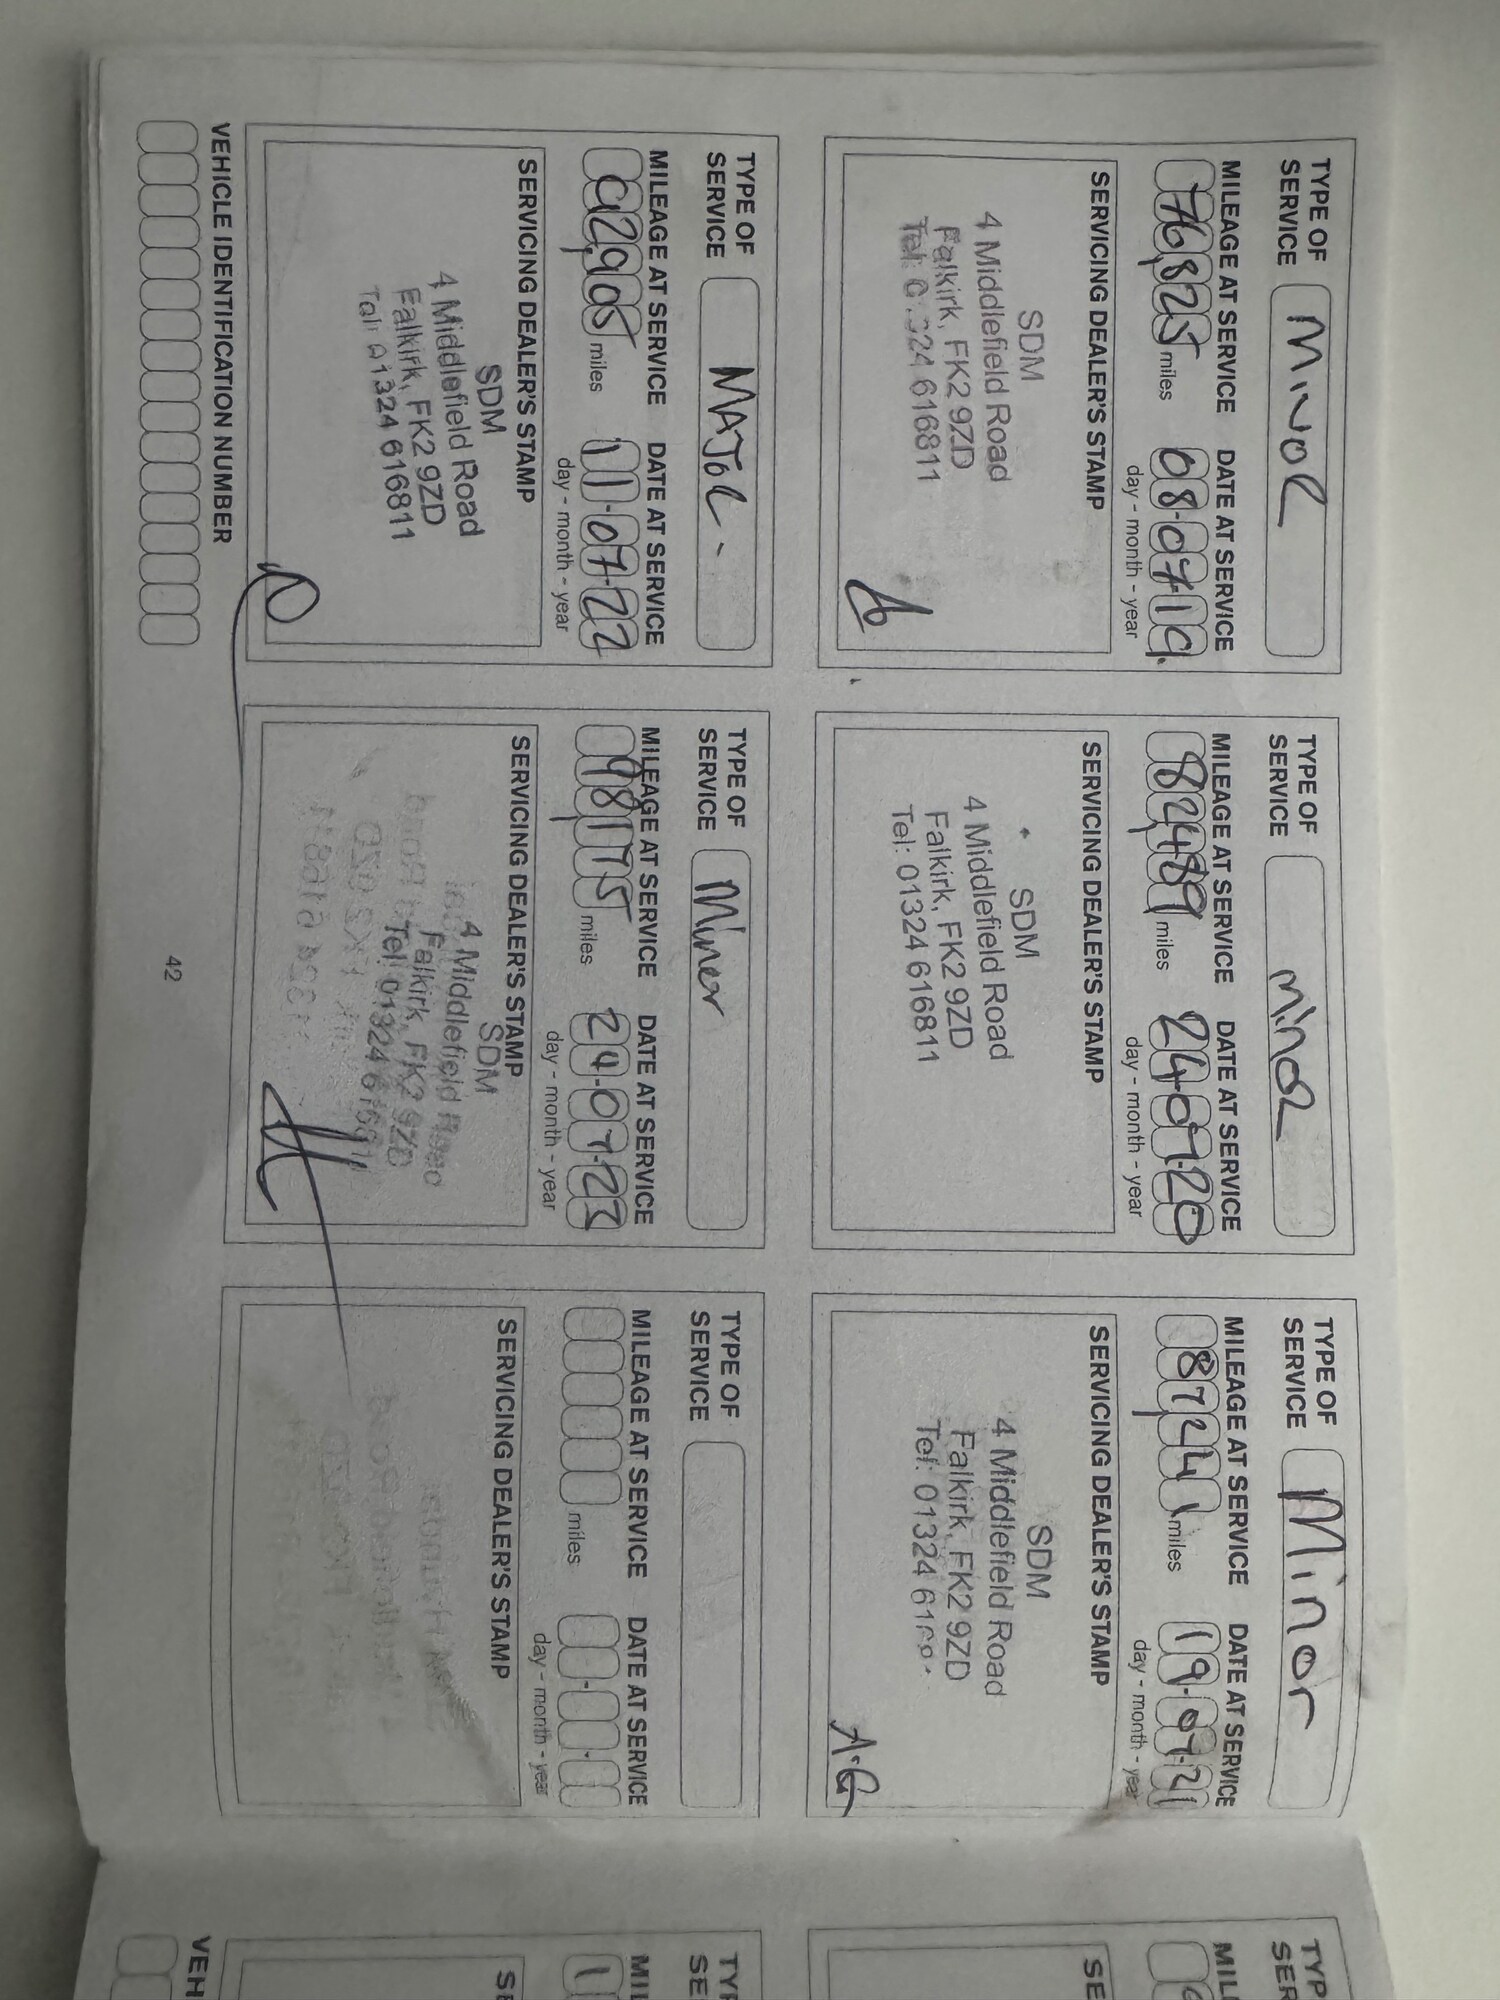 TYPE OF
SERVICE Minor
MILEAGE AT SERVICE DATE AT SERVICE
76,825 miles 08-07-19
day - month - year
SERVICING DEALER'S STAMP
SDM
4 Middlefield Road
Falkirk, FK2 9ZD
Tel: 01324 616811
TYPE OF
SERVICE Minor
MILEAGE AT SERVICE DATE AT SERVICE
82,489 miles 24-07-20
day - month - year
SERVICING DEALER'S STAMP
SDM
4 Middlefield Road
Falkirk, FK2 9ZD
Tel: 01324 616811
TYPE OF
SERVICE Minor
MILEAGE AT SERVICE DATE AT SERVICE
87,241 miles 19-07-21
day - month - year
SERVICING DEALER'S STAMP
SDM
4 Middlefield Road
Falkirk, FK2 9ZD
Tel: 01324
A.G
TYPE OF
SERVICE MAJOR -
MILEAGE AT SERVICE DATE AT SERVICE
92,905 miles 11-07-22
day - month - year
SERVICING DEALER'S STAMP
SDM
4 Middlefield Road
Falkirk, FK2 9ZD
Tel: 01324 616811
TYPE OF
SERVICE Minor
MILEAGE AT SERVICE DATE AT SERVICE
98,175 miles 24-07-23
day - month - year
SERVICING DEALER'S STAMP
SDM
4 Middlefield Road
Falkirk, FK2 9ZD
Tel: 01324
TYPE OF
SERVICE
MILEAGE AT SERVICE DATE AT SERVICE
miles
day - month - year
SERVICING DEALER'S STAMP
VEHICLE IDENTIFICATION NUMBER
42